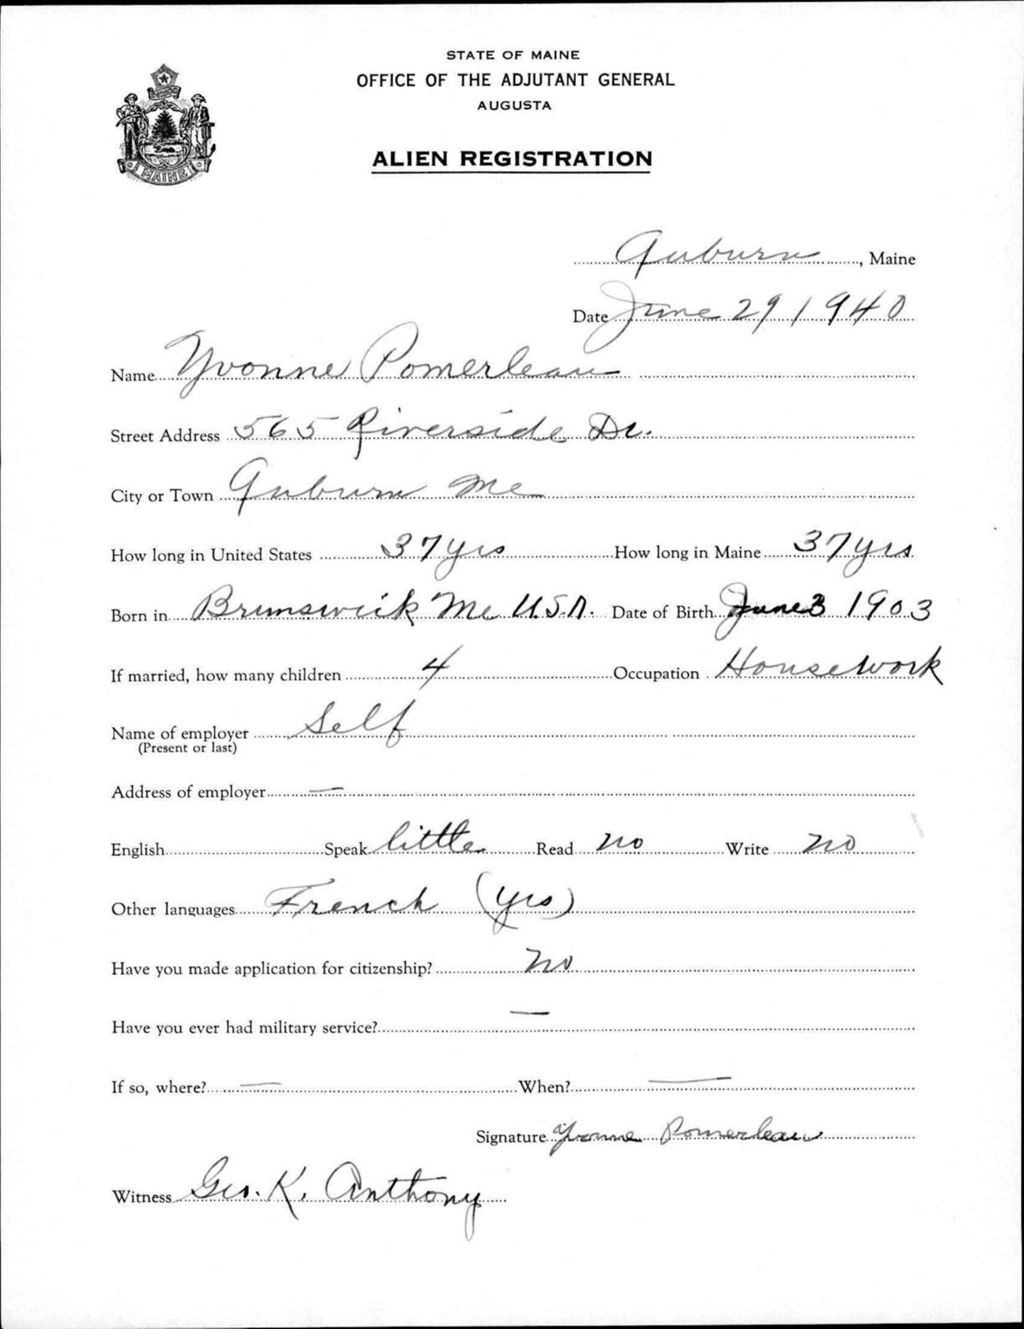 STATE OF MAINE
OFFICE OF THE ADJUTANT GENERAL
AUGUSTA
ALIEN REGISTRATION
MAINE
Auburn, Maine
Date June 29 1940
Name Yvonne Pomerleau
Street Address 565 Riverside Dr.
City or Town Auburn Me
How long in United States 37 yrs How long in Maine 37 yrs
Born in Brunswick Me U.S.A. Date of Birth June 3 1903
If married, how many children 4 Occupation Housework
Name of employer Self
(Present or last)
Address of employer —
English Speak little Read no Write no
Other languages French (yes)
Have you made application for citizenship? no
Have you ever had military service? —
If so, where? — When? —
Signature Yvonne Pomerleau
Witness Geo. K. Anthony